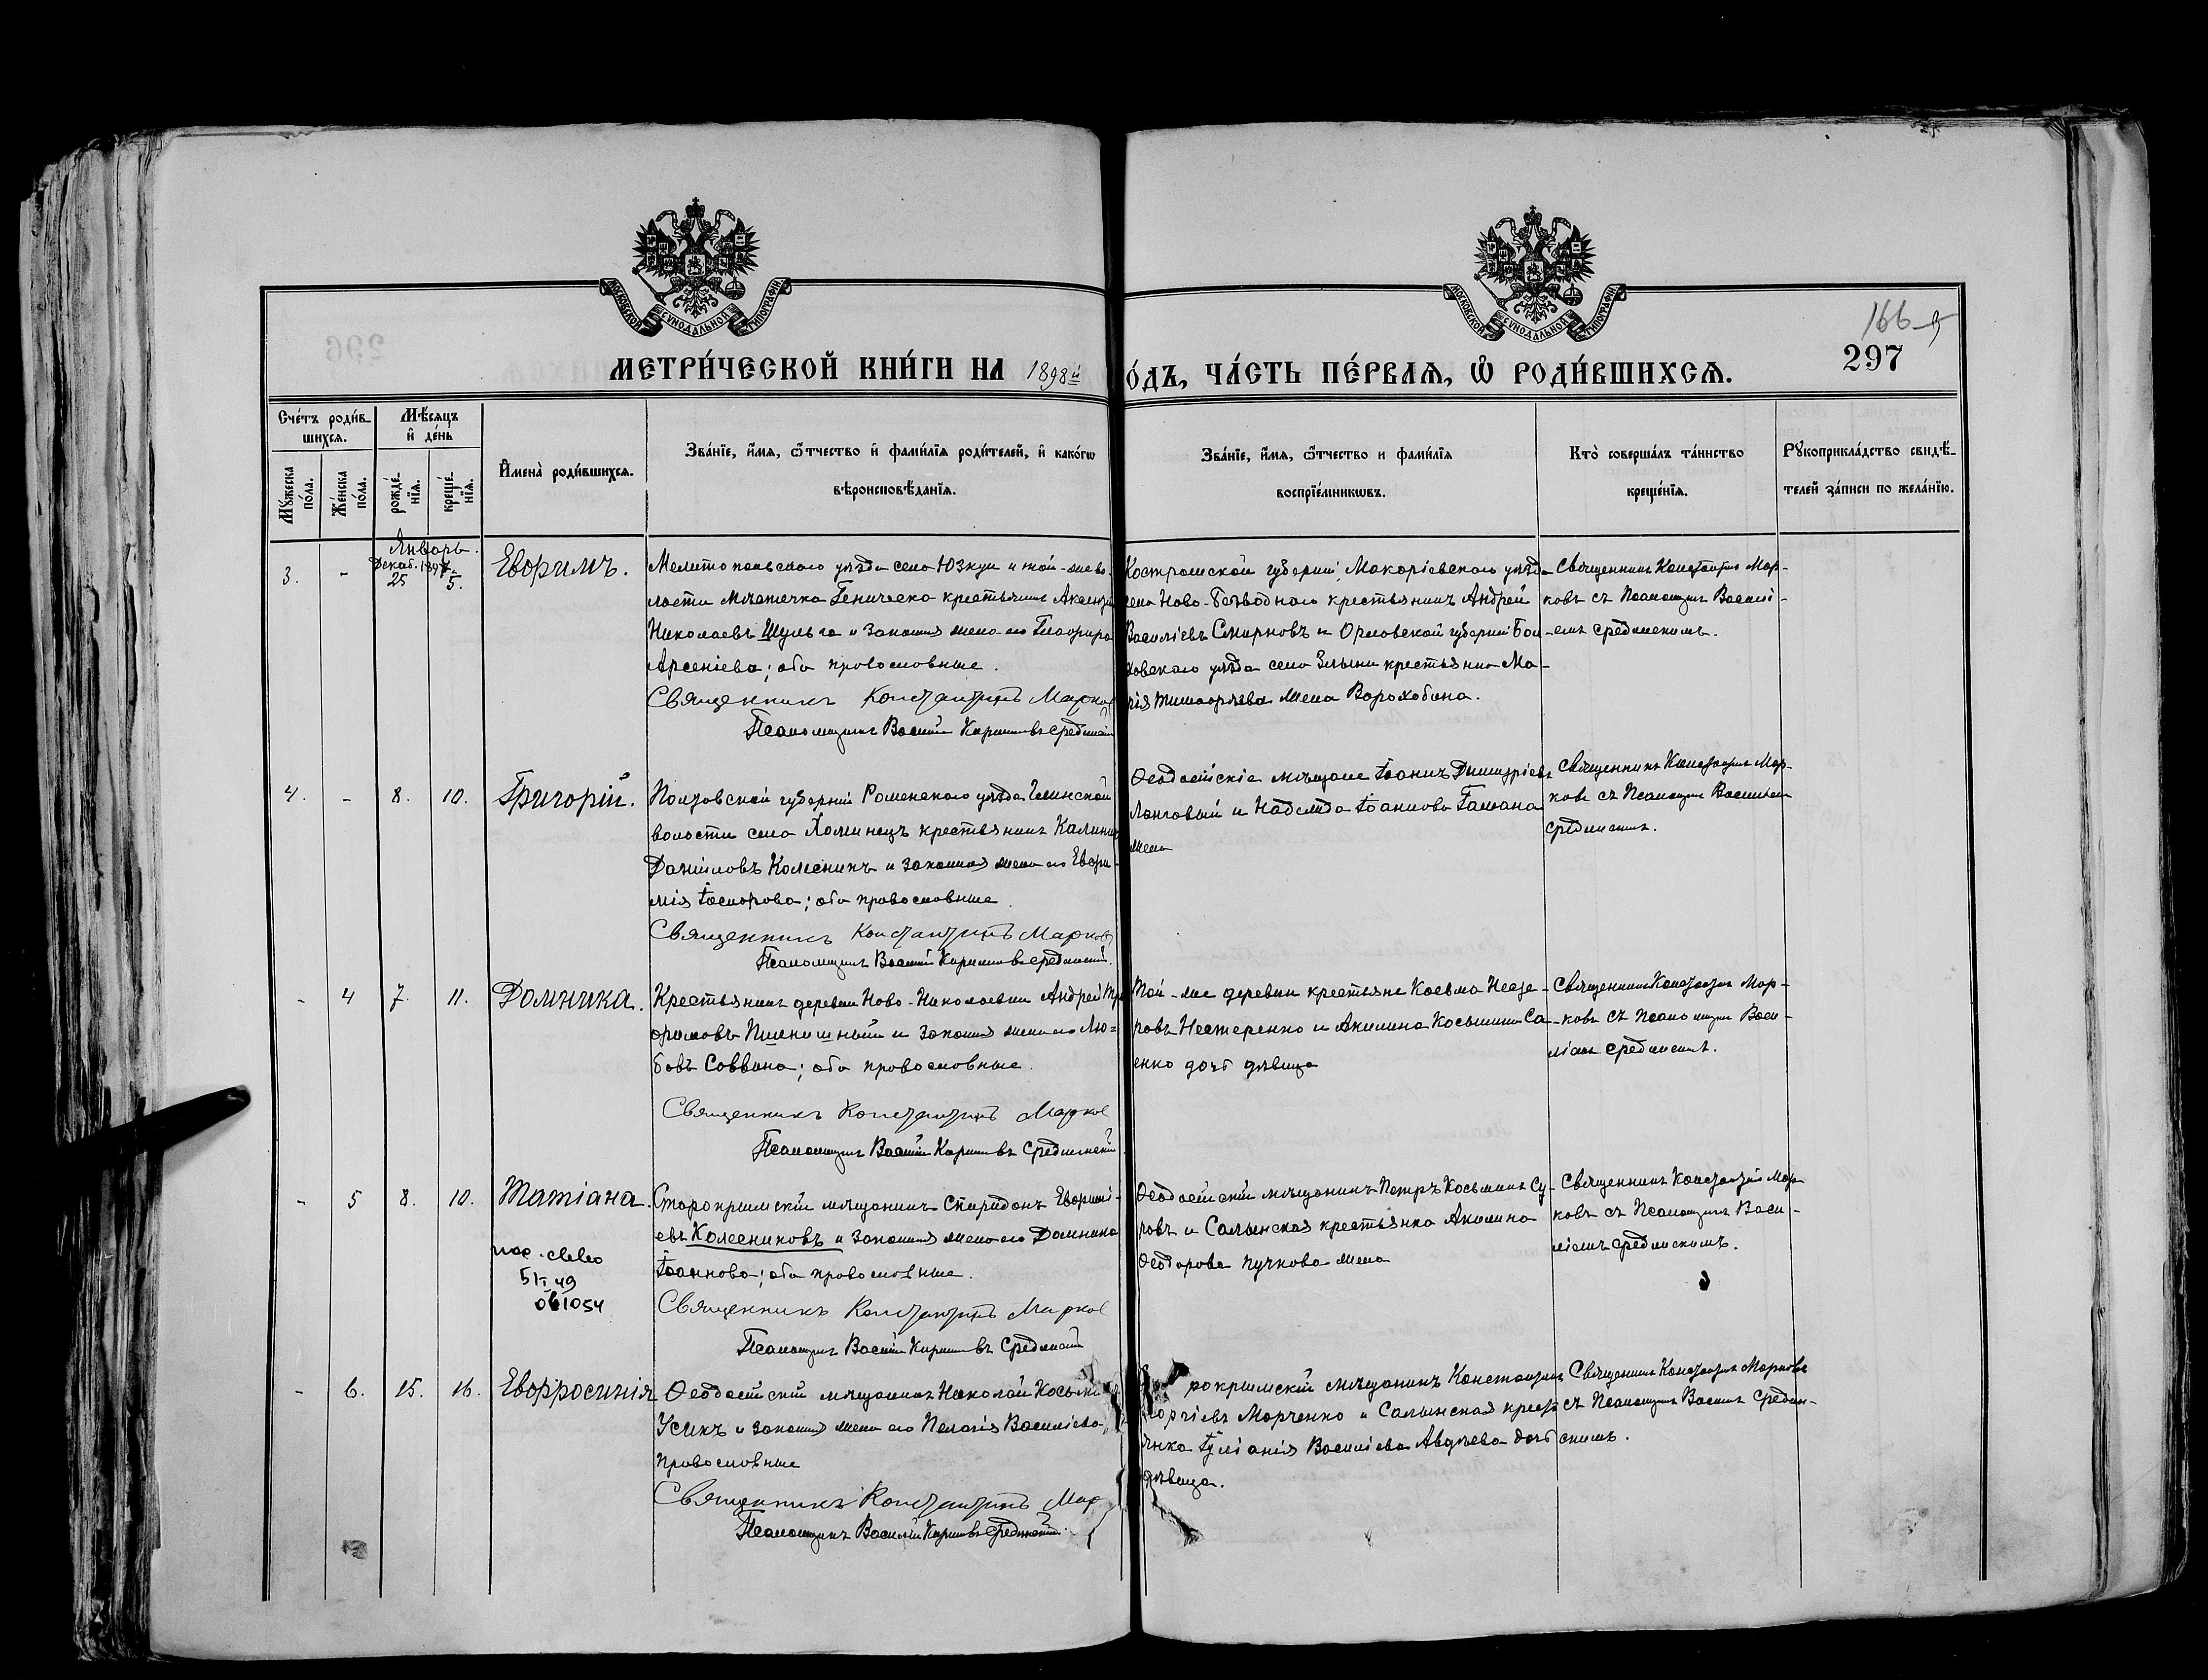 166
297
МОСКОВСКОЙ СУНОДАЛЬНОЙ ТИПОГРАФІИ
МОСКОВСКОЙ СУНОДАЛЬНОЙ ТИПОГРАФІИ
МЕТРИ́ЧЕСКОЙ КНИ́ГИ НА 1898й
О́ДЪ, ЧА́СТЬ ПЕ́РВАѦ, Ѡ҆ РОДИ́ВШИХСѦ.
Сче́тъ роди́в-
шихсѧ.
Мѣ́сѧцъ
и҆ де́нь
Мꙋ́жеска
по́ла.
Же́нска
по́ла.
рожде́-
нїѧ.
креще́-
нїѧ.
И҆мена̀ роди́вшихсѧ.
Зва́нїе, и҆́мѧ, ѻ҆́тчество и҆ фами́лїѧ роди́телей, и҆ како́гѡ
вѣроисповѣ́данїѧ.
Зва́нїе, и҆́мѧ, ѻ҆́тчество и фами́лїѧ
воспрїе́мникѡвъ.
Кто̀ соверша́лъ та́инство
креще́нїѧ.
Рꙋкоприкла́дство свидѣ́-
телей за́писи по жела́нїю.
Январь.
Декаб. 1897
3. - 25 5.
Евѳимъ.
Мелитопольскаго уѣзда села Юзкуи и той-же во-
лости мѣстечка Геническа крестьянинъ
Николаевъ Шульга и законная жена его Глафира
Арсеніева; оба православные.
Священникъ Константинъ Марков
Псаломщикъ Василій Срединскій
Костромской губерніи, Макаріевскаго уѣзда
села Ново-Безводнаго крестьянинъ Андрей
Василіевъ Смирновъ и Орловской губерніи Бол-
ховскаго уѣзда села Злыни крестьянка Ма-
рія Тимоѳеева жена Ворохобина.
Священникъ Константинъ Мар-
ковъ съ Псаломщикомъ Василі-
емъ Срединскимъ.
4. - 8. 10.
Григорій.
Полтавской губерніи Роменскаго уѣзда Глинской
волости села Хоминецъ крестьянинъ Калиникъ
Даніиловъ Колесникъ и законная жена его Евѳи-
мія; оба православные.
Священникъ Константинъ Марковъ
Псаломщикъ Василій Срединскій.
Ѳеодосійскіе мѣщане Іоаннъ Димитріевъ
Лонговый и Надежда Іоаннова Гамана
жена
Священникъ Константинъ Мар-
ковъ съ Псаломщикомъ Василіемъ
Срединскимъ.
- 4 7. 11.
Домника.
Крестьянинъ деревни Ново-Николаевки Андрей Тро-
фимовъ Пшеничный и законная жена его Лю-
бовь Саввина; оба православные.
Священникъ Константинъ Марков
Псаломщикъ Василій Срединскій
Той-же деревни крестьяне Косьма Несте-
ровъ Нестеренко и Акилина Косьмина Са-
енко дочь дѣвица
Священникъ Константинъ Мар-
ковъ съ Псаломщикомъ Васи-
ліемъ Срединскимъ.
- 5 8. 10.
Татіана.
5 49
061054
Старокрымскій мѣщанинъ Спиридонъ Евѳимі-
евъ Колесниковъ и законная жена его Домника
Іоаннова; оба православные.
Священникъ Константинъ Марков
Псаломщикъ Василій Срединскій
Ѳеодосійскій мѣщанинъ Петръ Косьминъ Су-
ровъ и Салынская крестьянка Акилина
Ѳеодорова Пучкова жена
Священникъ Константинъ Мар-
ковъ съ Псаломщикомъ Васи-
ліемъ Срединскимъ.
- 6. 15. 16.
Евфросинія
Ѳеодосійскій мѣщанинъ Николай Косьмин
Усикъ и законная жена его Пелагія Василіева,
православные
Священникъ Константинъ Мар
Псаломщикъ Василій Срединскій.
рокрымскій мѣщанинъ Константинъ
оргіевъ Марченко и Салынская крест
янка Іуліанія Василіева Авдѣева дочь
дѣвица.
Священникъ Константинъ Марковъ
съ Псаломщикомъ Василіемъ Средин-
скимъ.